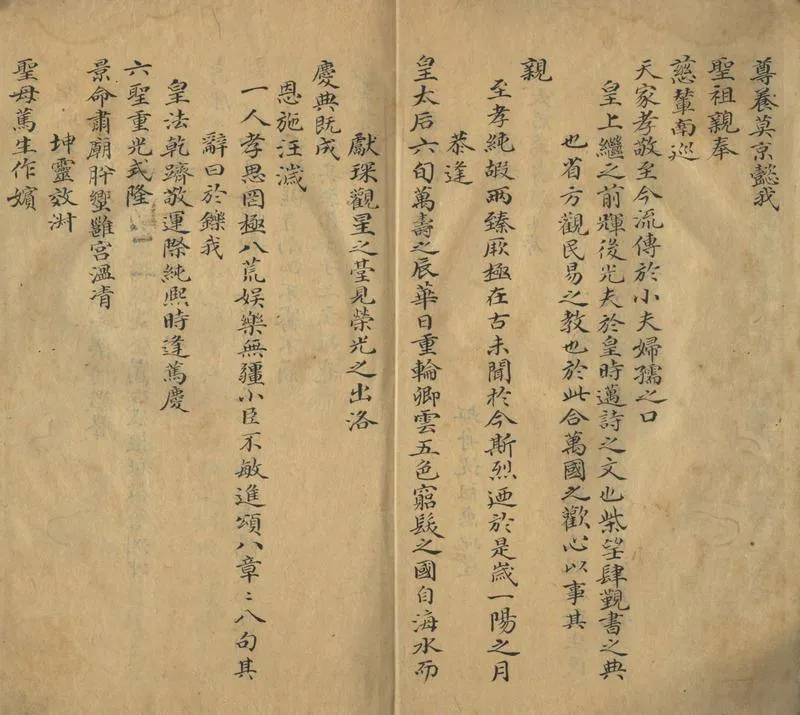 尊養莫京懿我
聖祖親奉
慈輦南巡
天家孝敬至今流傳於小夫婦孺之口
皇上繼之前輝後光夫於皇時邁詩之文也柴望肆覲書之典
也省方觀民易之教也於此合萬國之歡心以事其
親
至孝純嘏兩臻厥極在古未聞於今斯烈迺於是歲一陽之月
恭逢
皇太后六旬萬壽之辰華日重輪卿雲五色窮髮之國自海水而
獻琛觀星之臺見榮光之出洛
慶典既成
恩施汪濊
一人孝思罔極八荒娛樂無疆小臣不敏進頌八章〻八句其
辭曰於鑠我
皇法乾躋敬運際純熙時逢篤慶
六聖重光式隆
景命肅廟肸蠁雝宮溫凊
坤靈效淑
聖母篤生作嬪